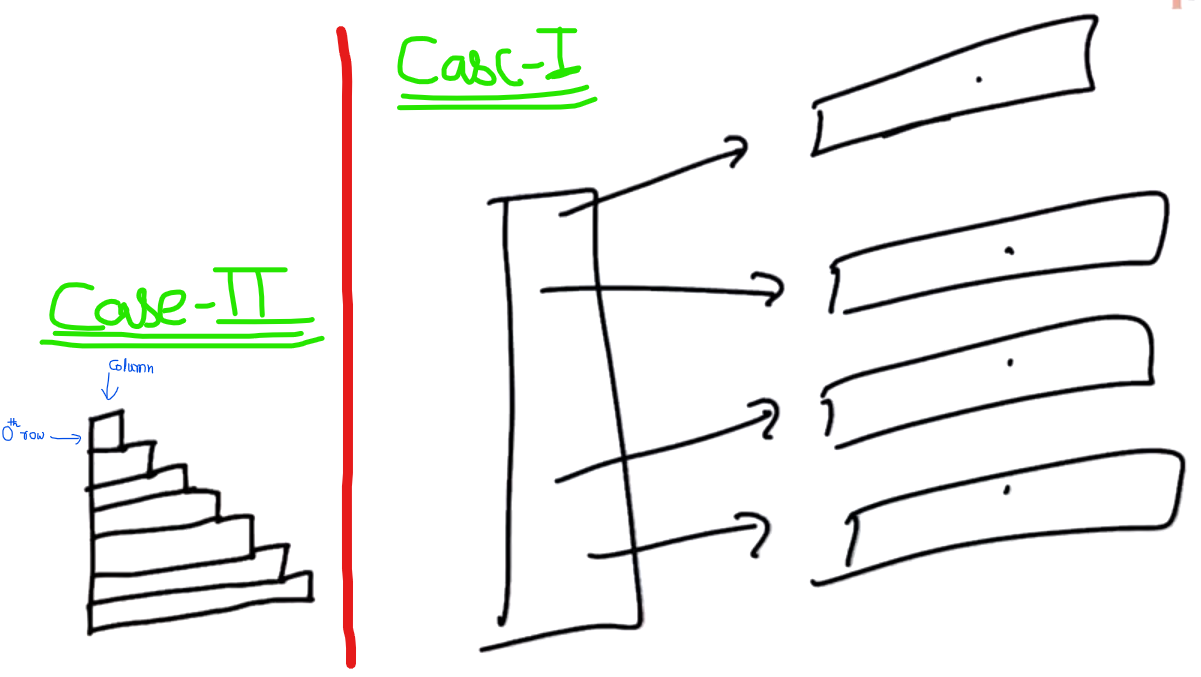 Case-I
Case-II
Column
0th row